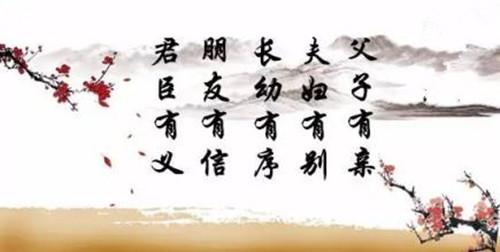 父子有亲
夫妇有别
长幼有序
朋友有信
君臣有义